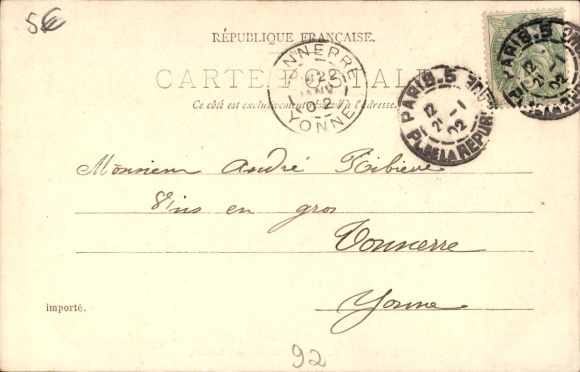 5€
RÉPUBLIQUE FRANÇAISE.
CARTE POSTALE
Ce côté est exclusivement réservé à l'adresse.
TONNERRE
22
JANV
02
YONNE
PARIS-5
12
21-1
02
PL. DE LA RÉPUBLIQUE
PARIS-5
12
21-1
02
Monsieur André Ribière
Vins en gros
Tonnerre
Yonne
importé.
92